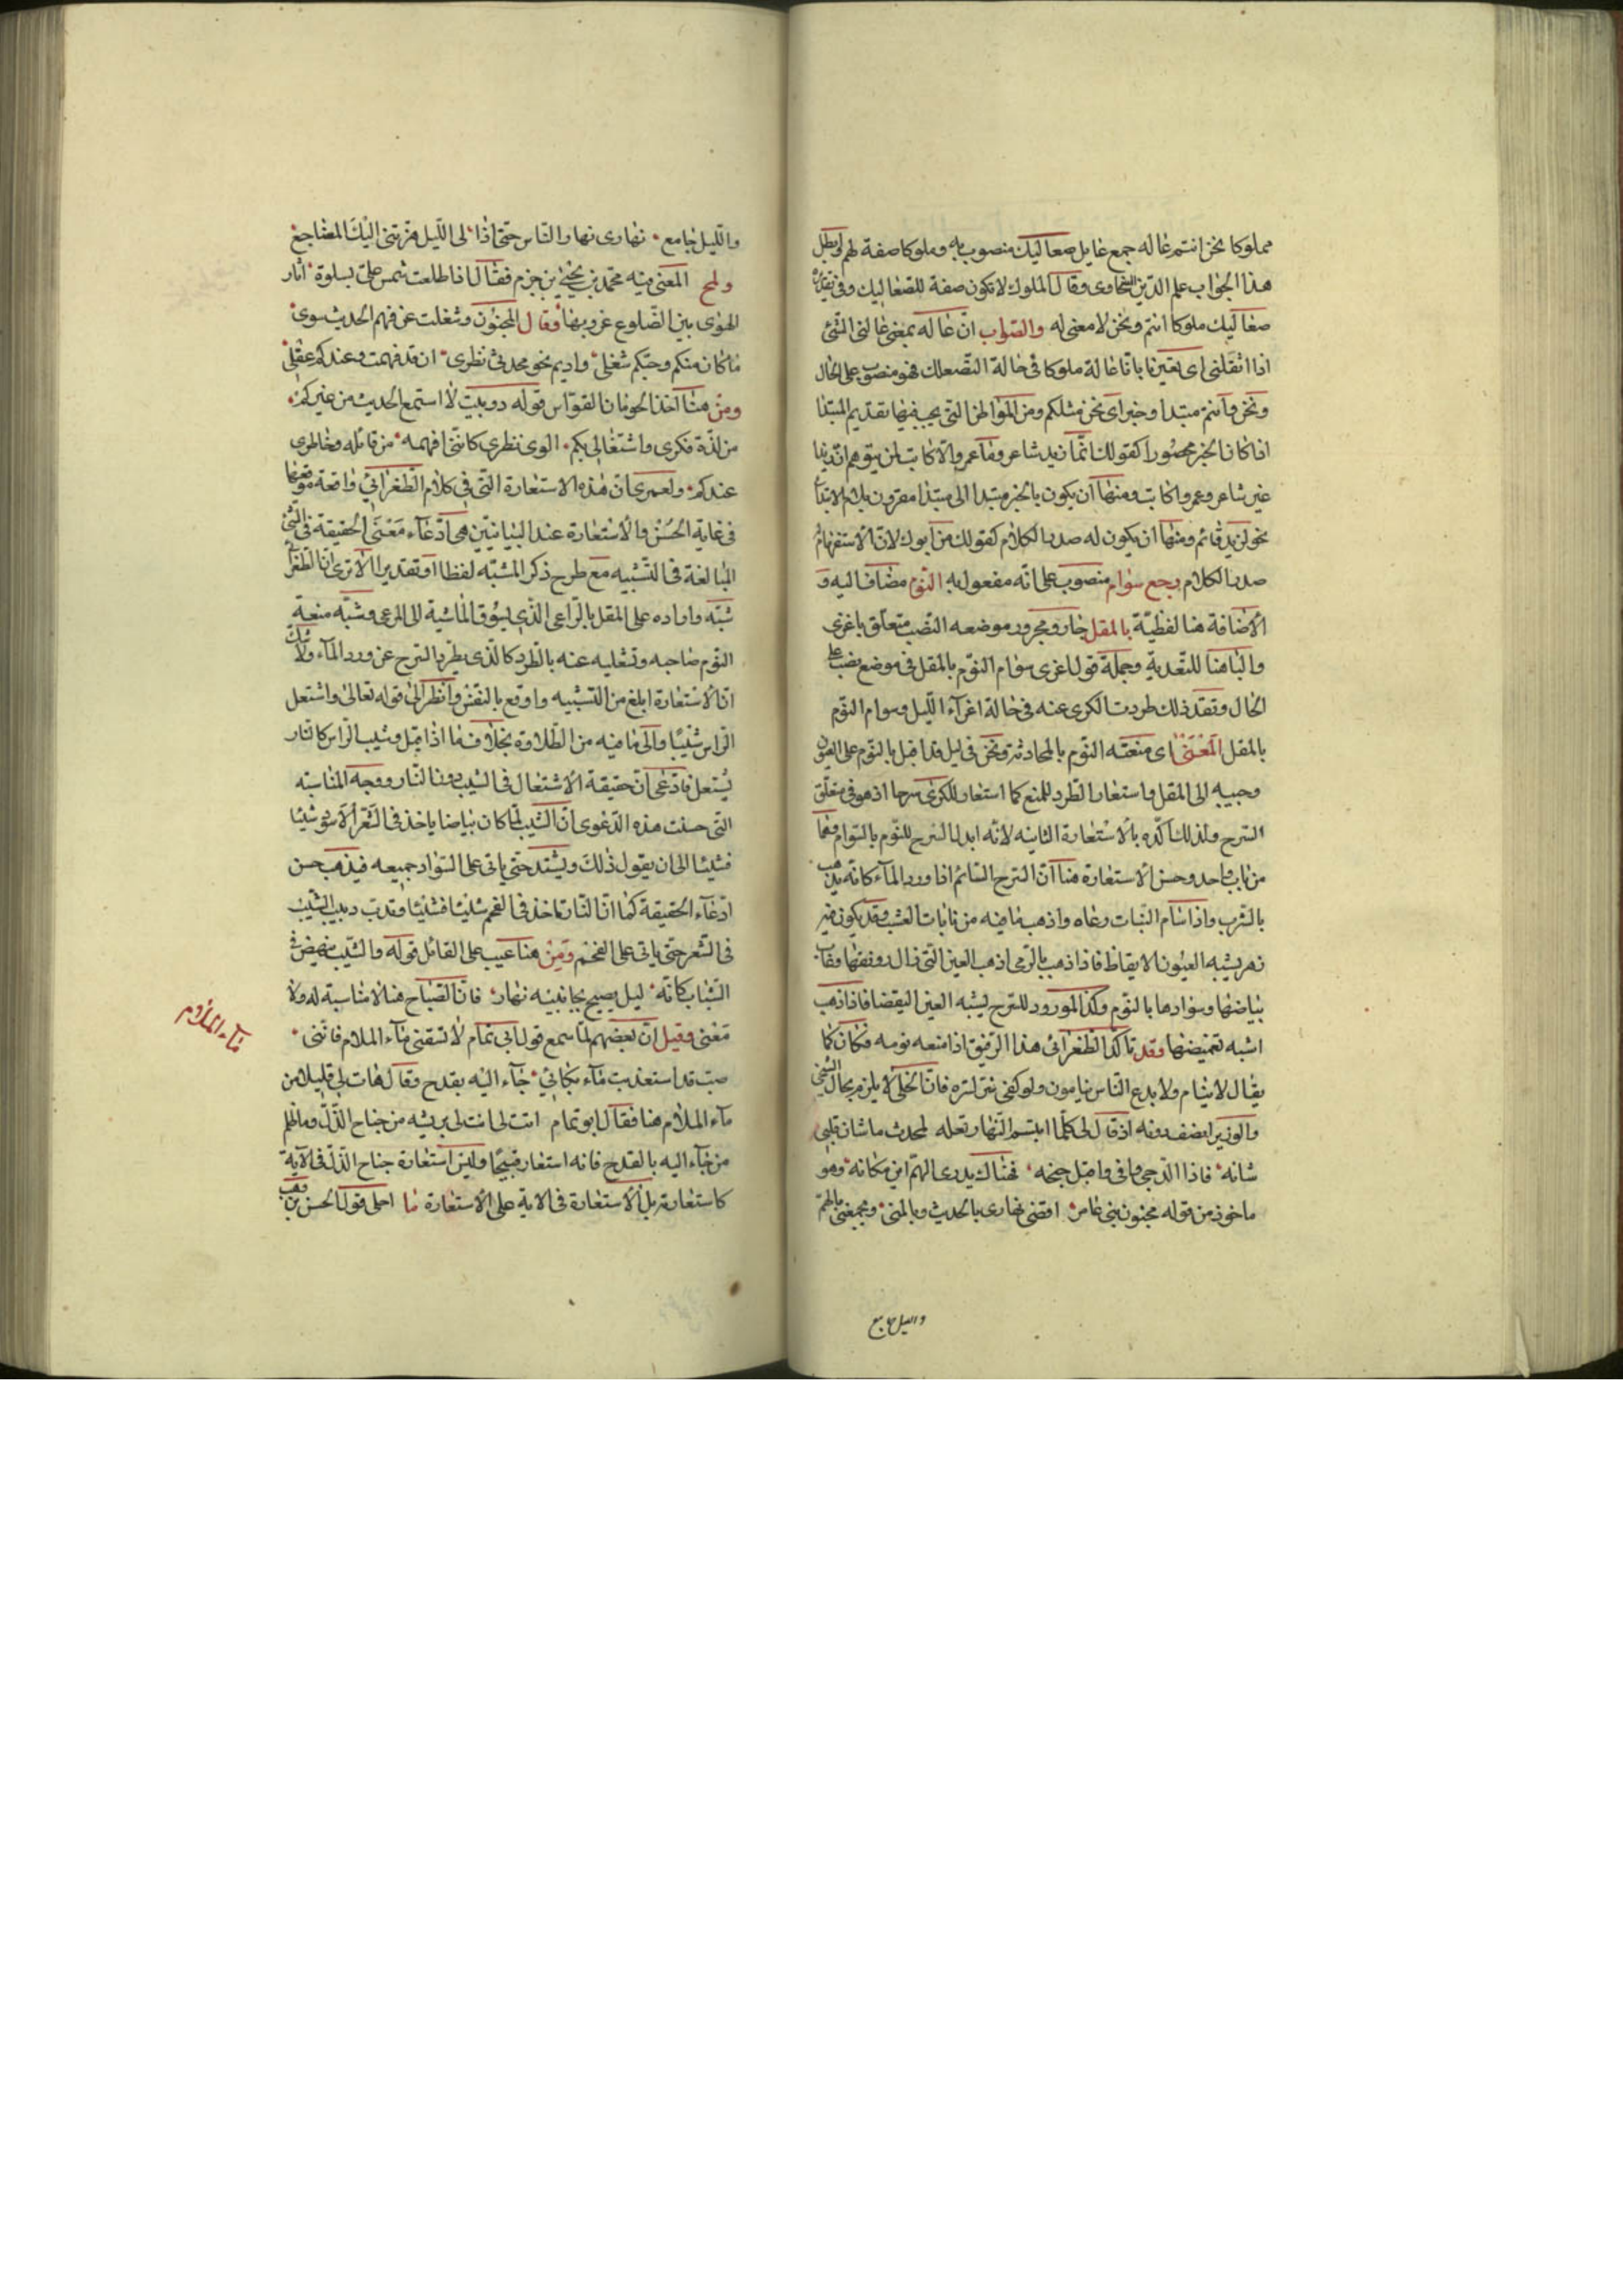 مملوكا نحن انتم عاله جمع عايل صعاليك منصوب به وملوكا صفة لهم وابطل
هذا الجواب علم الدين السخاوى وقال الملوك لا تكون صفة للصعاليك وفى تقديره
صعاليك ملوكا انتم ونحن لا معنى له والصواب ان عاله بمعنى عالنى الشئ
اذا اثقلنى اى تعيرنا باننا عالة ملوكا فى حالة التصعلك فهو منصوب على الحال
ونحن وانتم مبتدا وخبر اى نحن مثلكم ومن المواطن التى يجب فيها تقديم المبتدا
اذا كان الخبر محصورا كقولك انما زيد شاعر وما عمرو الا كاتب لمن يتوهم ان زيدا
غير شاعر وعمروا كاتب ومنها ان يكون بالخبر مبتدا الى مبتدا مقرون بلام الابتداء
نحو لزيد قائم ومنها ان يكون له صدر الكلام كقولك من ابوك لان الاستفهام له
صدر الكلام يرجع سوام منصوب على انه مفعول به النوم مضاف اليه و
الاضافة هنا لفظيّة بالمقل جار ومجرور موضعه النصب متعلق باغرى
والبا هنا للتعدية وجملة قول اغرى سوام النوم بالمقل فى موضع نصب على
الحال وتقد ذلك طردت الكرى عنه فى حالة اغرآء الليل وسوام النوم
بالمقل المعنى اى منعته النوم بالمحادثة ونحن فى ليل قد اقبل بالنوم على العيون
وحببه الى المقل واستعار الطرد للمنع كما استعار للكرى سرحا اذ هو فى متعلق
السرح ولذلك اكّده بالاستعارة الثانيه لانه ابدل السرح للنوم بالسوام وهما
من باب واحد وحسن الاستعارة هنا ان السرح السائم اذا ورد المآء كانه يذهب
بالشرب واذا سام النبات رعاه واذهب ما فيه من نابات العشب وقد يكون فيه
زهر يشبه العيون الايقاظ فاذا ذهب بالرمى اذهب العين التى زال رونقها وغاب
بياضها وسوادها بالنوم وكذا المورود للسرح يشبه العين اليقضا فاذا ذهب
اشبه تغميضها وقد تاكد الطغرائى هذا الرفيق اذا منعه نومه فكان كما
يقال لا ينام ولا يدع الناس ينامون ولو كفى نتر لتره فان الخلى لا يلزم بحال الشجى
والوزير ايضف رفه اذ قال لى كلّما ابتسم النهار تعله لمحدث ما شان قلبى
شانه فاذا الدجى وافى واقبل جنحه فهناك يدرى الهم اين مكانه وهو
ماخوذ من قوله مجنون بنى عامر اقضى نهارى بالحديث وبالمنى ويجمعنى بالهم
والليل جامع
والليل جامع نهارى نهار الناس حتى اذا لى الليل هزتنى اليك المضاجع
ولمح المعنى فيه محمد بن يحيى بن حزم فقال اذا طلعت شمس على بسلوة اثار
الهوى بين الضلوع غروبها وقال المجنون وشغلت عن فهم الحديث سوى
ما كان منكم وحبكم شغلى واديم نحو محدثى نظرى ان قد فهمت وعندكم عقلى
ومن هنا اخذ الحومان القواس قوله دو بيت لا استمع الحديث من غيركم
من لذة فكرى واشتغالى بكم الوى نظرى كاننى افهمه من قائله وخاطرى
عندكم ولعمرى ان هذه الاستعارة التى فى كلام الطغرائى واقعة موقعها
فى غاية الحسن والاستعارة عند البيانيين هى ادعآء معنى الحقيقة فى الشئ
المبالغة فى التشبيه مع طرح ذكر المشبه لفظا او تقديرا الا ترى ان الطغرا
شبه واراده على المقل بالراعى الذى يسوق الماشية الى المرعى وشبه منعه
النوم صاحبه وتشليه عنه بالطرد كالذى يطرد السرح عن ورد المآء ولا شك
ان الاستعارة ابلغ من التشبيه واوقع بالنفس وانظر الى قوله تعالى واشتعل
الراس شيبا والى ما فيه من الطلاوة بخلاف ما اذا قيل وشيب الراس كالنار
يشتعل فادعى ان حقيقة الاشتعال فى الشيب دون النار ووجه المناسبته
التى حسنت هذه الدعوى ان الشيب لما كان بياضا ياخذ فى الشعر الاسود شيئا
فشيئا الى ان يقول ذلك ويشتد حتى ياتى على السواد جميعه فيذهب حسن
ادعآء الحقيقة كما ان النار تاخذ فى الفحم شيئا فشيئا وقد دب دبيب الشيب
فى الشعر حتى ياتى على الفحم ومن هنا عيب على القائل قوله والشيب ينهض فى
الشباب كانه ليل يصيح بجانبيه نهار فان الصباح هنا لا مناسبة له ولا
معنى وقيل ان بعضهم لما سمع قول ابى تمام لا تسقنى مآء الملام فاننى
صب قد استعذبت مآء بكائى جآء اليه بقدح وقال هات لى قليلا من
مآء الملام هنا فقال ابو تمام ائت لى انت لى بريشه من جناح الذل وما ظلم
من جآء اليه بالقدح فانه استعار قبيحا وليس استعارة جناح الذل فى الآية
كاستعارته بل الاستعارة فى الاية على الاستعارة ما احلى قول الحسن بن وهب
مآء الملام